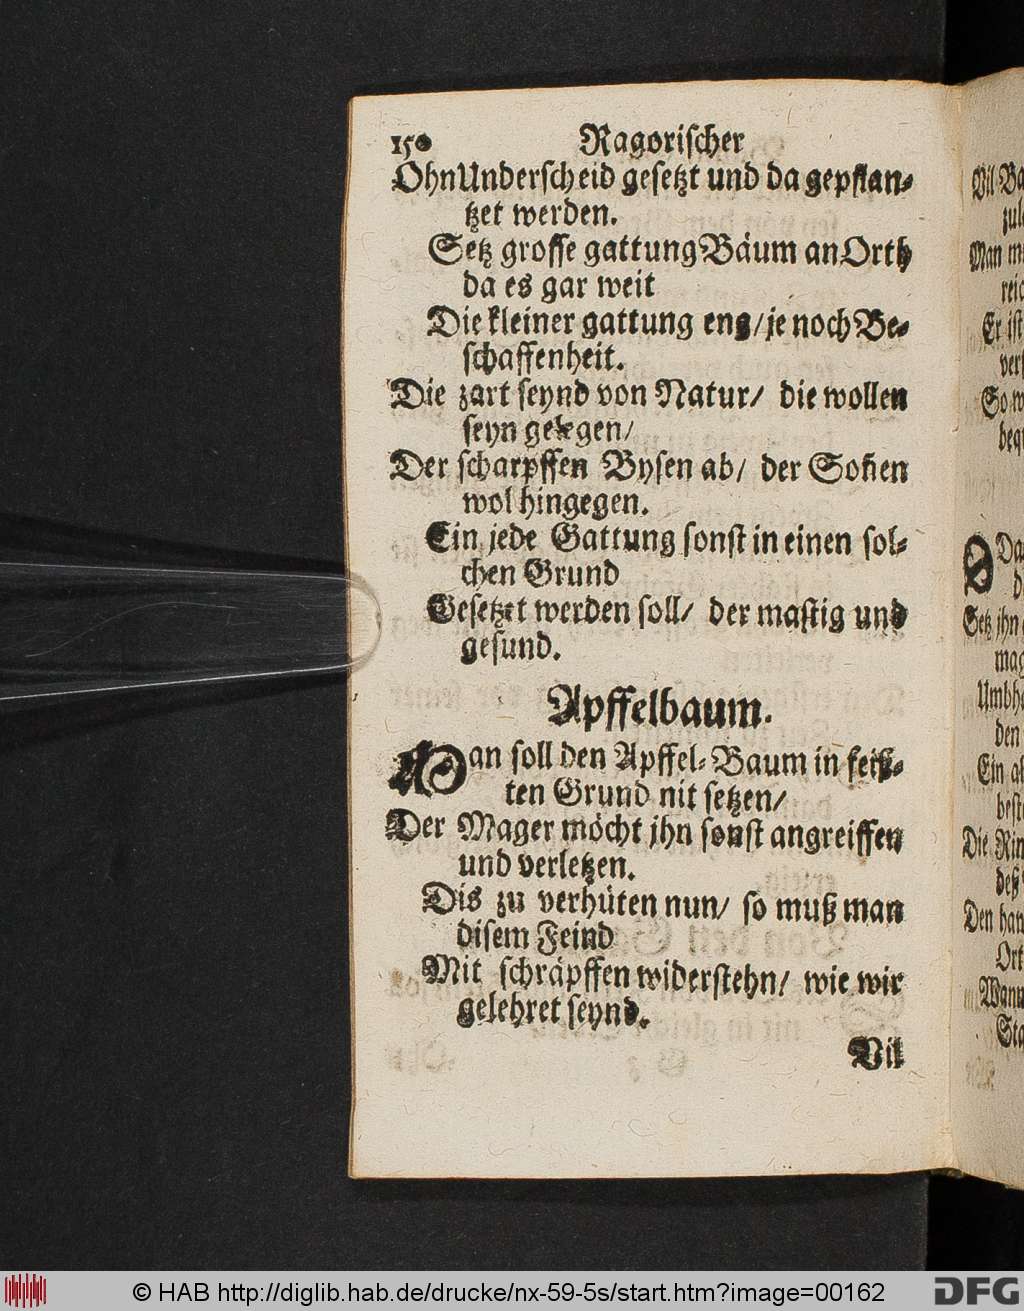 150 Ragorischer
Ohn Underscheid gesetzt und da gepflan-
tzet werden.
Setz grosse gattung Bäum an Orth
da es gar weit
Die kleiner gattung eng/ je noch Be-
schaffenheit.
Die zart seynd von Natur/ die wollen
seyn gelegen/
Der scharpffen Bysen ab/ der Soñen
wol hingegen.
Ein jede Gattung sonst in einen sol-
chen Grund
Gesetzet werden soll/ der mastig und
gesund.
Apffelbaum.
Man soll den Apffel-Baum in feiß-
ten Grund nit setzen/
Der Mager möcht jhn sonst angreiffen
und verletzen.
Dis zu verhüten nun/ so muß man
disem Feind
Mit schräpffen widerstehn/ wie wir
gelehret seynd.
Vil
Vil Ba
zul
Man
reic
Er ist
vers
So w
beq
Da
d
Setz jhn
mag
Umbh
den
Ein al
beste
Die Rin
deß
Den han
Ort
Wann
Sta
© HAB http://diglib.hab.de/drucke/nx-59-5s/start.htm?image=00162
DFG